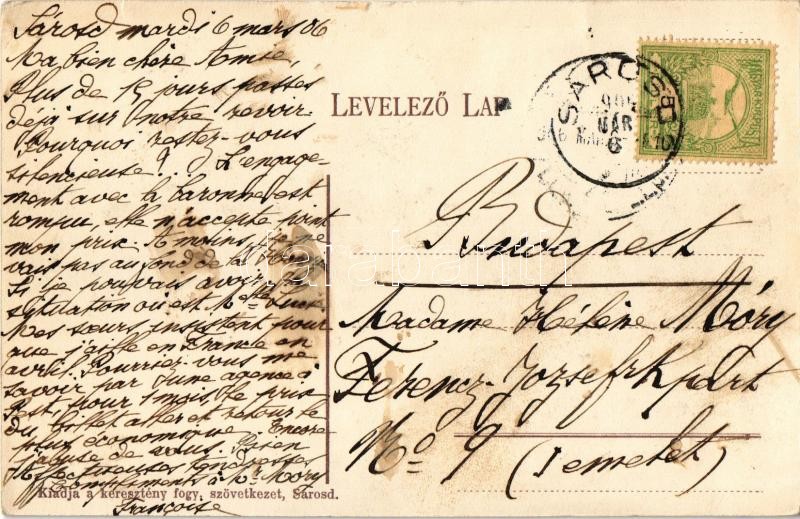 Sárosd mardi 6 mars 06
Ma bien chère Amie,
Plus de 15 jours passés
déjà sur notre revoir
Pourquoi restez-vous
silencieuse? L'engage-
ment avec la baronne est
rompu, elle n'accepte point
mon prix. A moins, je ne
vais pas au fond de la
Si je pouvais avoir la
situation où est Melle
Mes sœurs insistent pour
que j'aille en France en
avril. Pourriez-vous me
savoir par une agence si
c'est pour 1 mois, le prix
du billet aller et retour le
plus économique. Encore
j'abuse de vous. Bien
affectueuses tendresses
Compliments à Mr Móry
Françoise
LEVELEZŐ LAP
SÁROSD
906
MÁR
6
MAGYAR KIR. POSTA
Budapest
Madame Hélène Móry
Ferencz-Jozsef rkpart
No 9 (I emelet)
Kiadja a keresztény fogy. szövetkezet, Sárosd.
darabanth